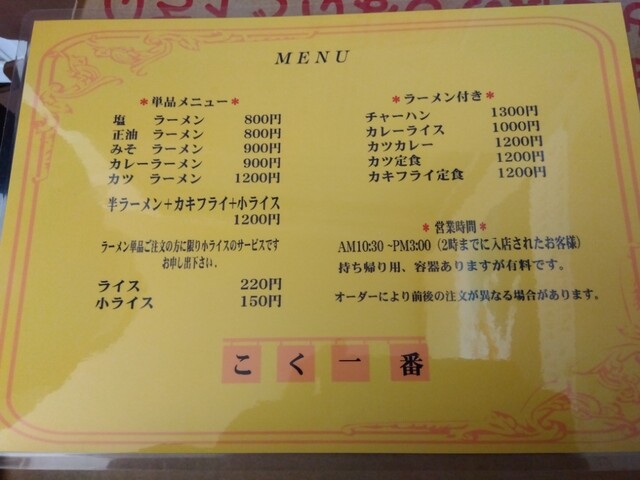 MENU
*単品メニュー*
塩 ラーメン 800円
正油 ラーメン 800円
みそ ラーメン 900円
カレーラーメン 900円
カツ ラーメン 1200円
半ラーメン+カキフライ+小ライス
1200円
ラーメン単品ご注文の方に限り小ライスのサービスです
お申し出下さい。
ライス 220円
小ライス 150円
*ラーメン付き*
チャーハン 1300円
カレーライス 1000円
カツカレー 1200円
カツ定食 1200円
カキフライ定食 1200円
*営業時間*
AM10:30~PM3:00(2時までに入店されたお客様)
持ち帰り用、容器ありますが有料です。
オーダーにより前後の注文が異なる場合があります。
こく一番